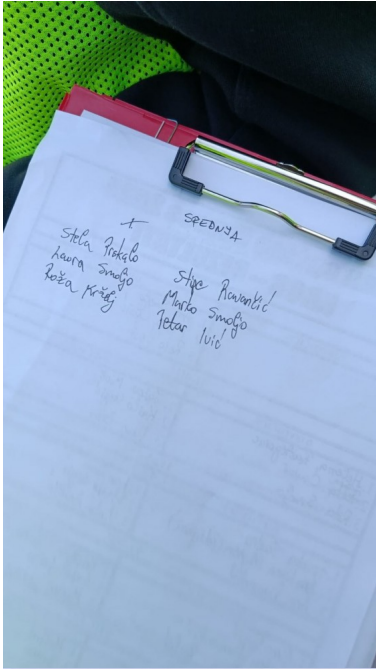 SREDNJA
Stela Prskalo
Laura Smoljo
Roža Krželj
Stipe
Marko Smoljo
Petar Ivić